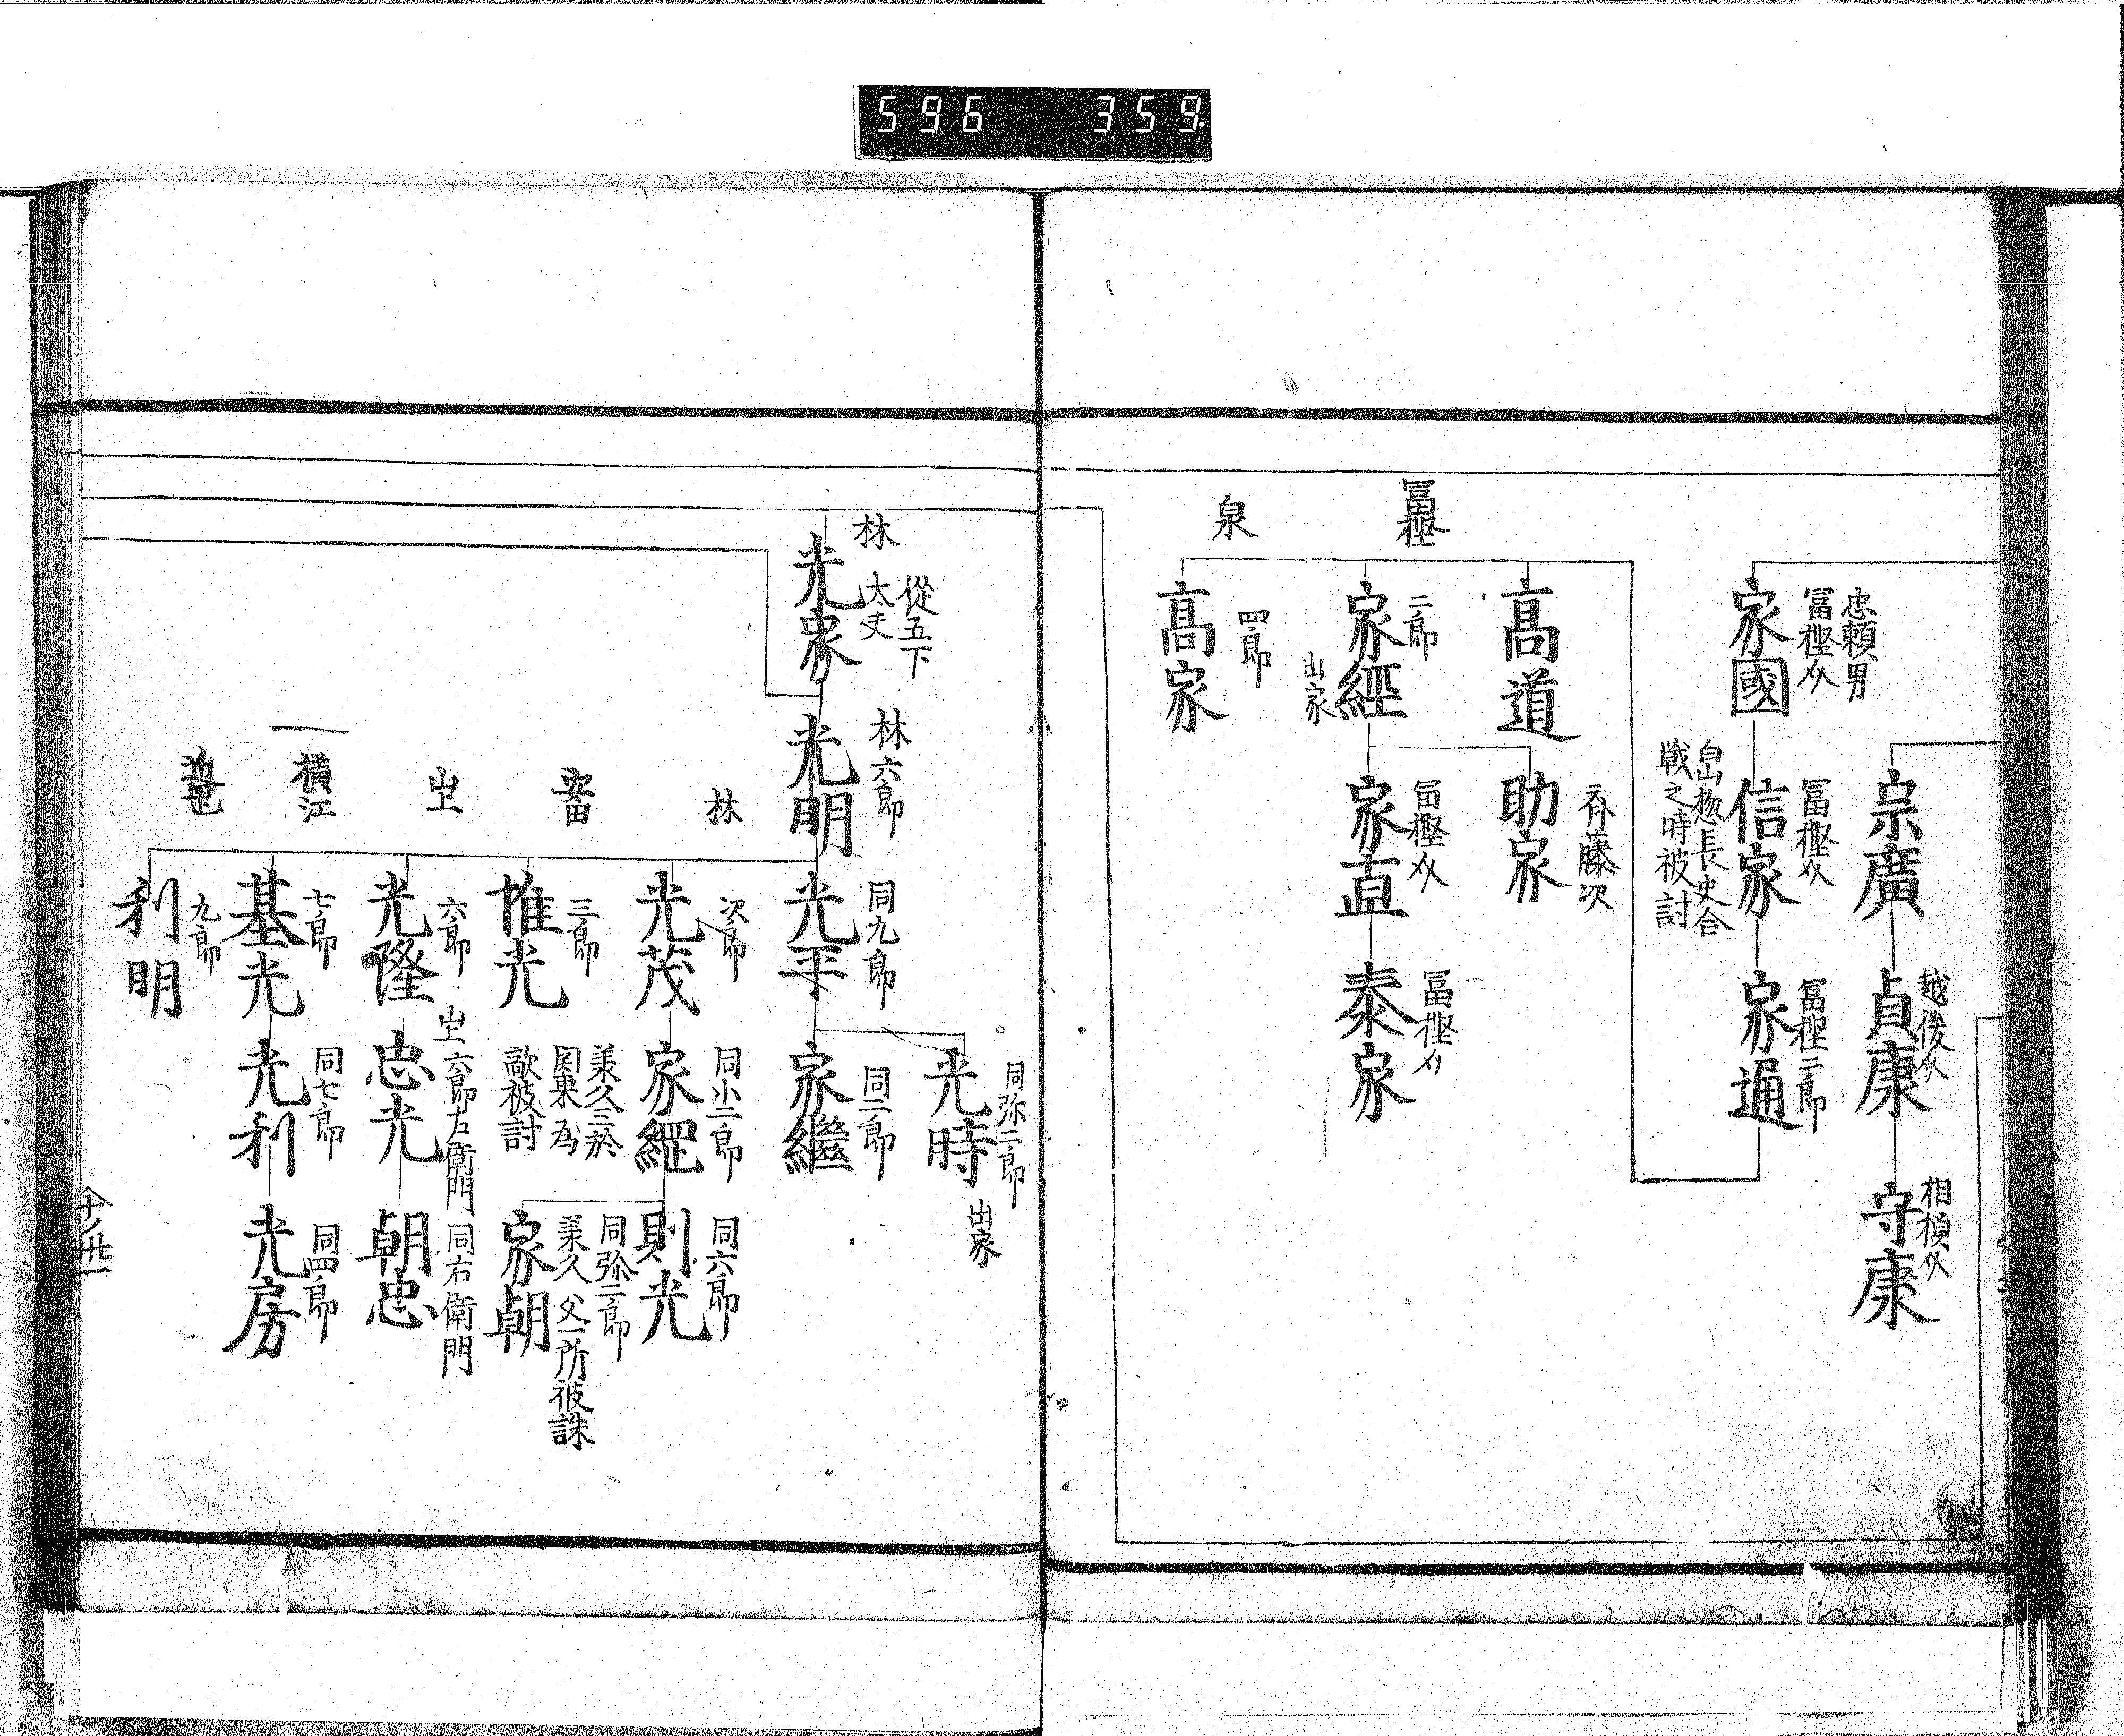 596 359
宗廣
越後介
貞康
相模介
守康
忠頼男
冨樫介
家國
冨樫介
信家
白山惣長史合
戦之時被討
冨樫二郎
家通
高道
斉藤次
助家
冨樫
二郎
家經
出家
冨樫介
家直
冨樫介
泰家
泉
四郎
高家
林
從五下
大夫
光家
林六郎
光明
同九郎
光平
同弥二郎
光時
出家
同二郎
家繼
林
次郎
光茂
同小二郎
家綱
同六郎
則光
同弥二郎
承久父一所被誅
家朝
安田
三郎
惟光
承久三於
関東為
敵被討
山上
六郎
光隆
山上六郎右衛門
忠光
同右衛門
朝忠
横江
七郎
基光
同七郎
光利
同四郎
光房
九郎
利明